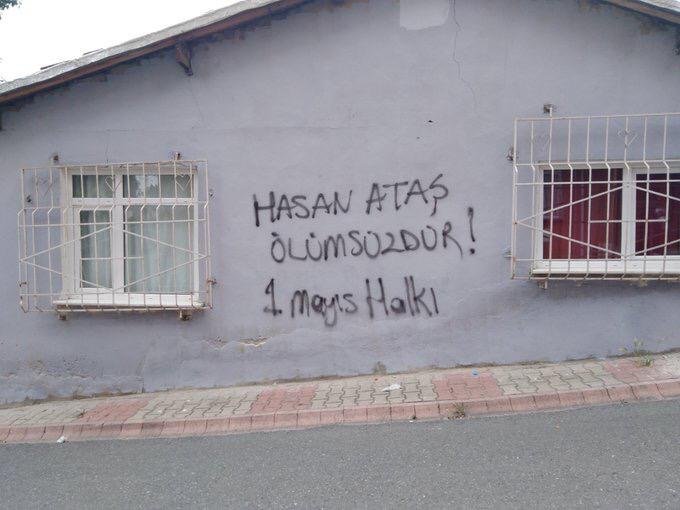 HASAN ATAŞ
ÖLÜMSÜZDÜR!
1. Mayıs Halkı